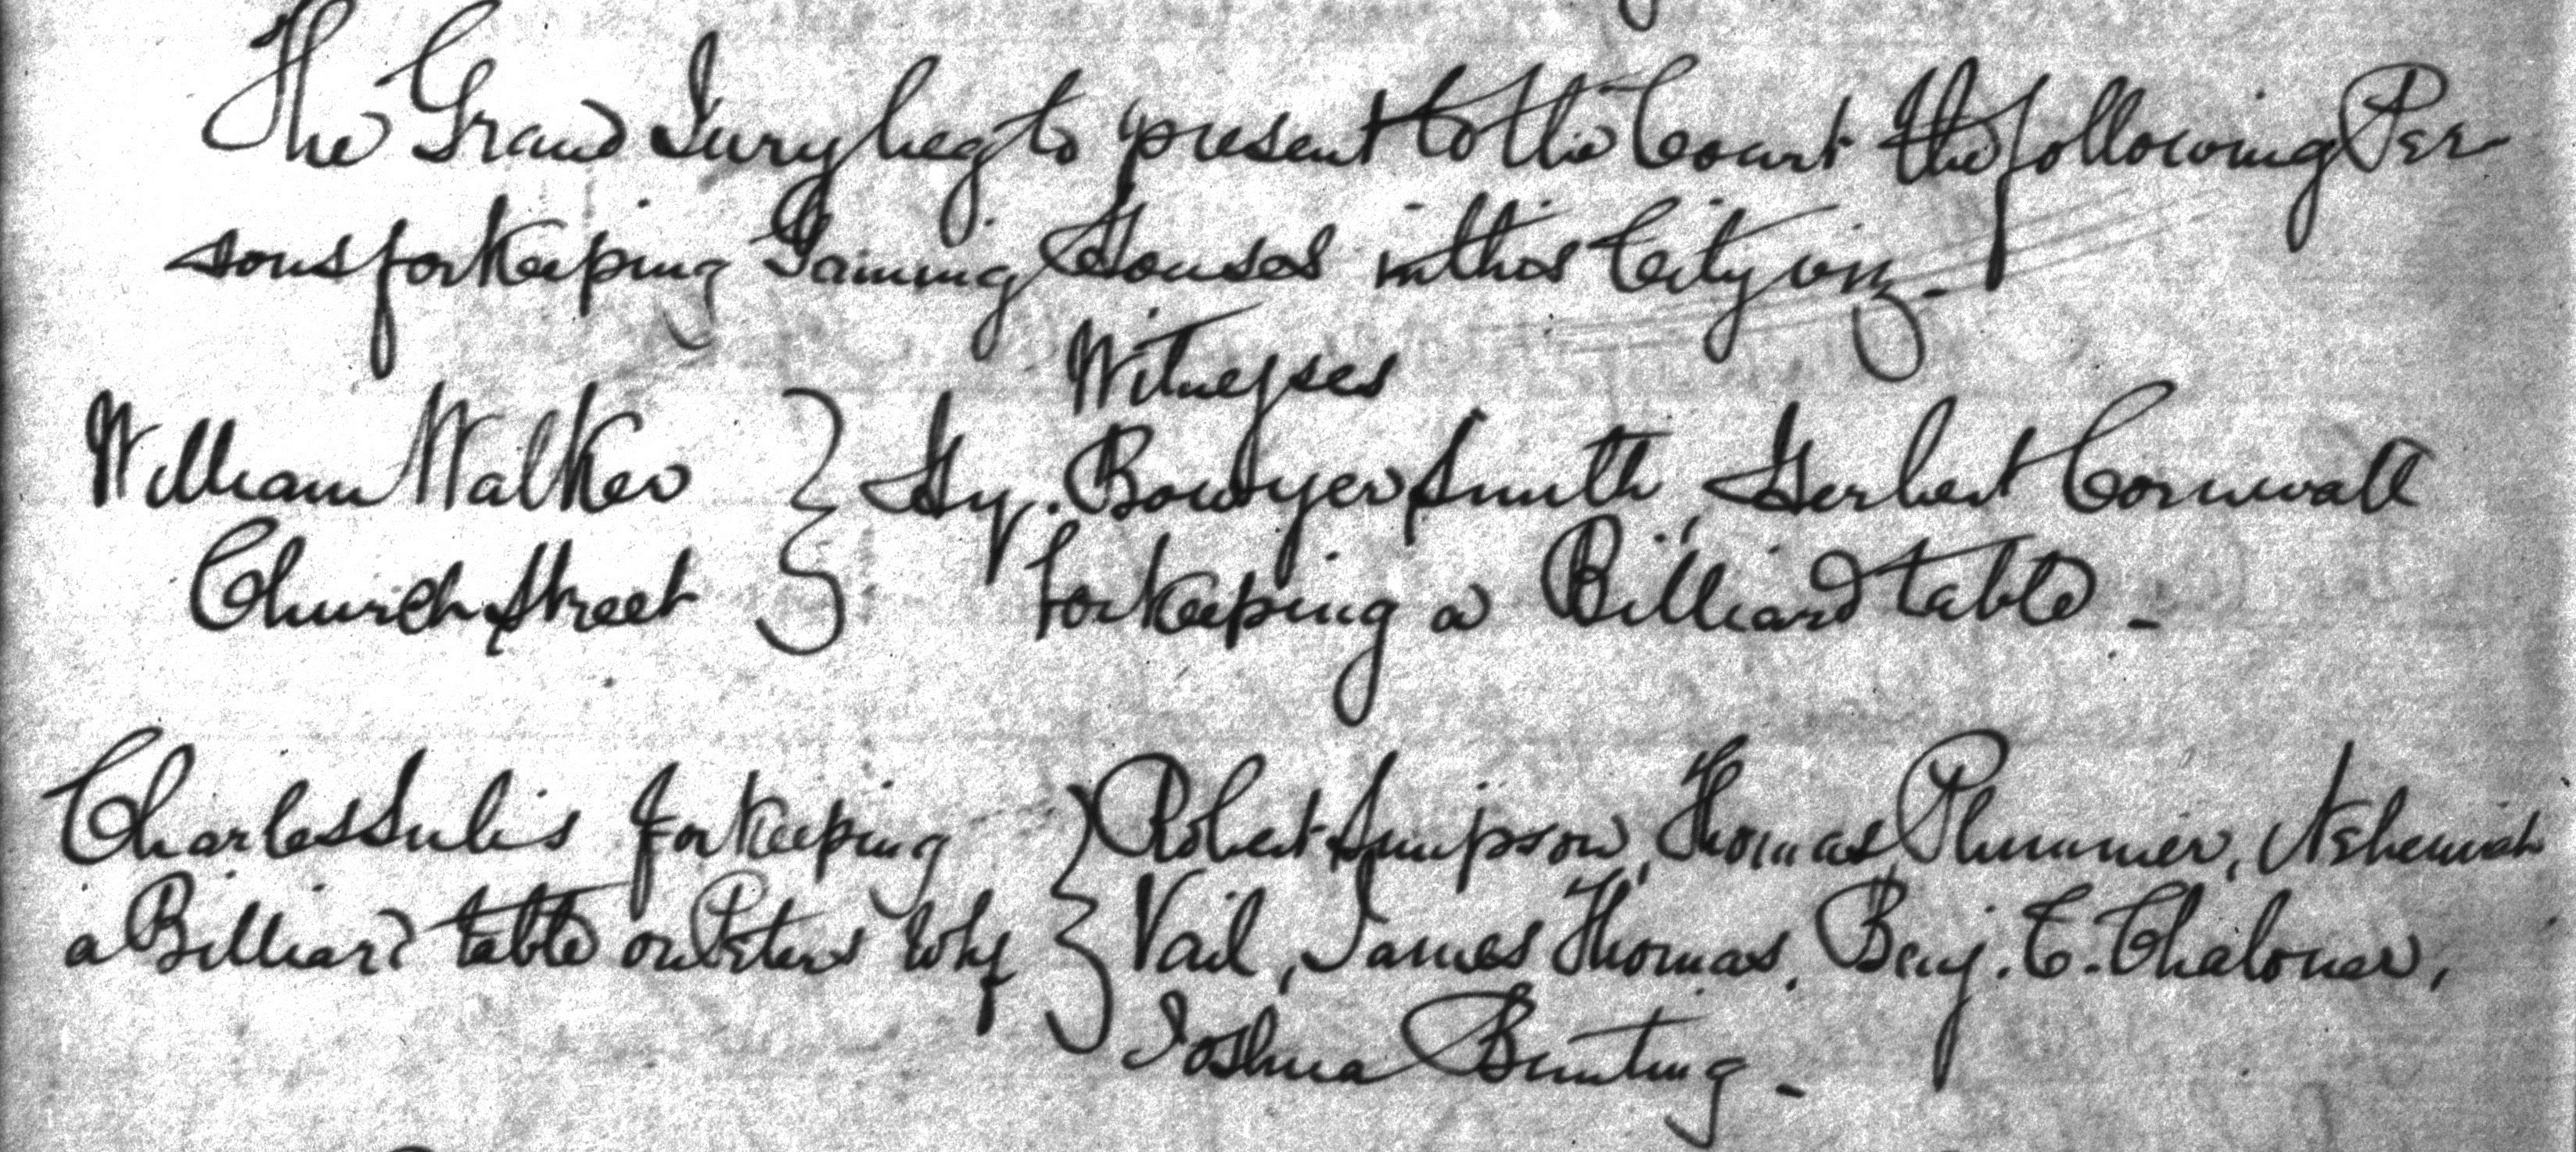 The Grand Jury beg to present to the Court the following Per-
sons for keeping Gaming Houses in this City viz.
Witnesses
William Walker } Hy. Bowyer Smith, Herbert Cornwall
Church Street } for keeping a Billiard table -
Charles Sulis for keeping } Robert Simpson, Thomas Plummer, Nehemiah
a Billiard table on Peters Whf } Vail, James Thomas, Benj. C. Chaloner,
Joshua Bunting -